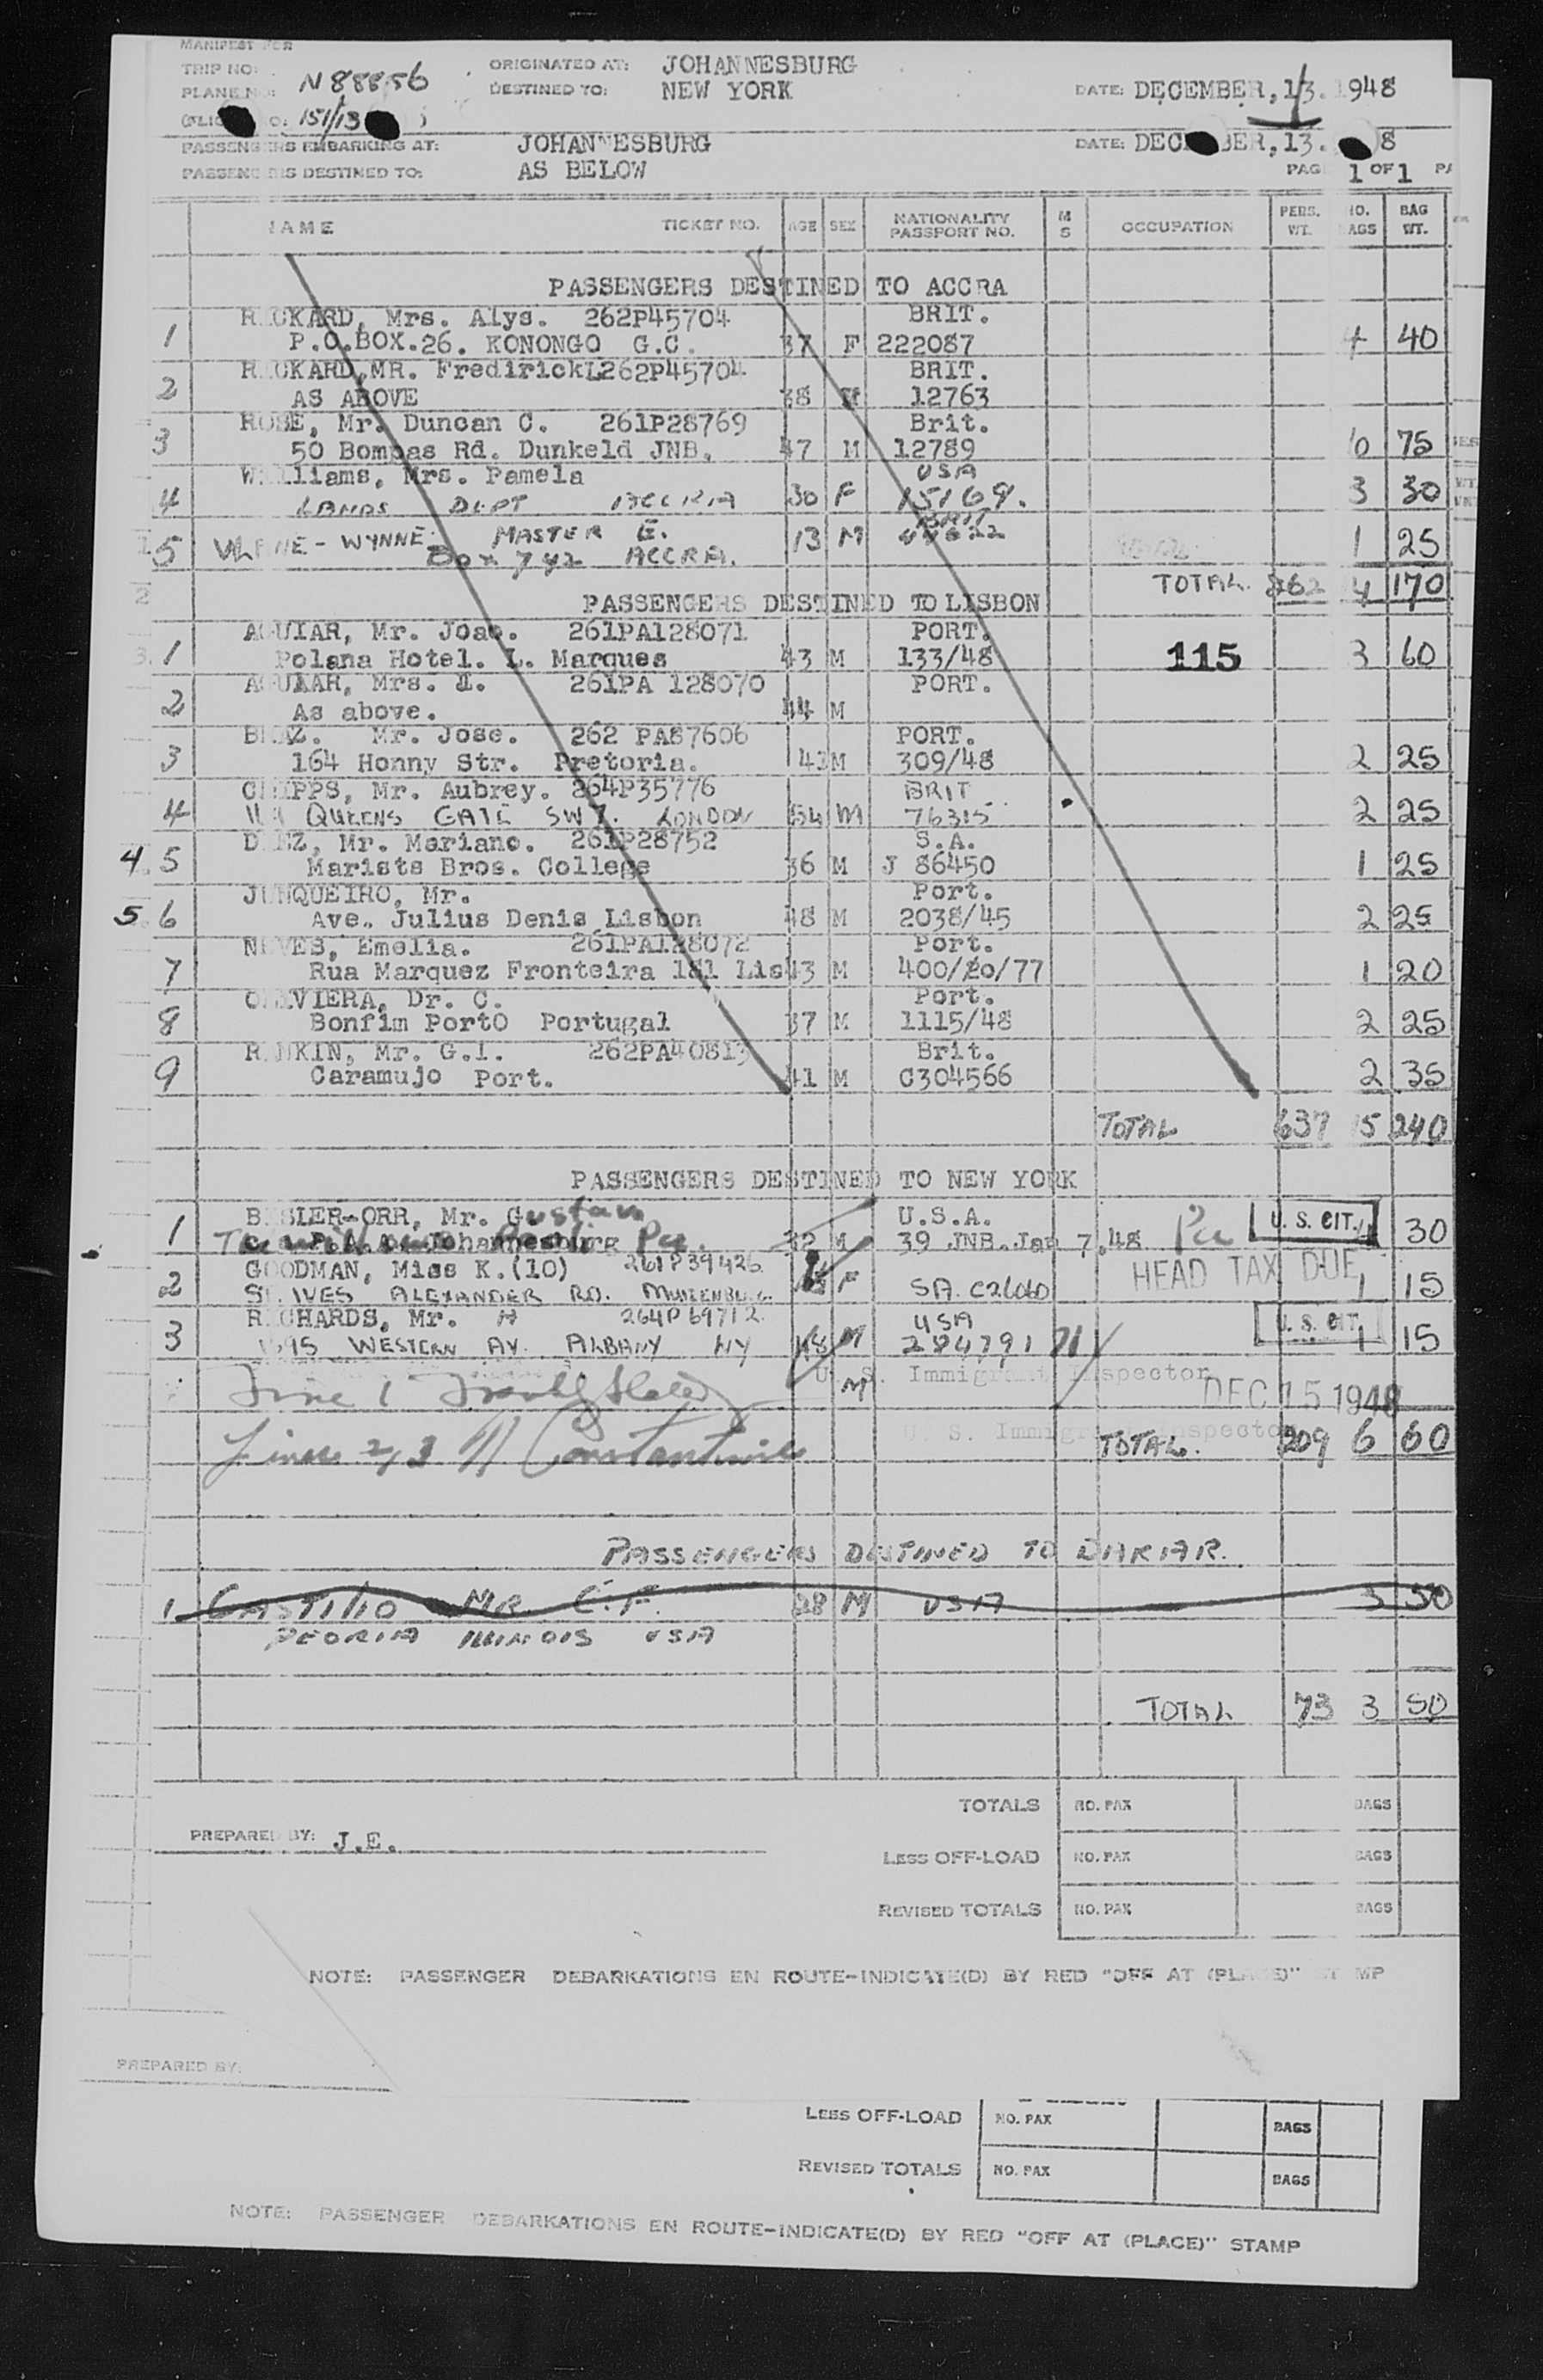 MANIFEST FOR
TRIP NO:
PLANE NO: N88856
ORIGINATED AT: JOHANNESBURG
DESTINED TO: NEW YORK
DATE: DECEMBER, 13. 1948
151/13
PASSENGERS EMBARKING AT: JOHANNESBURG
DATE: DEC BER, 13. 8
PASSENGERS DESTINED TO: AS BELOW
PAG 1 OF 1 PA
NAME TICKET NO. AGE SEX NATIONALITY PASSPORT NO. M S OCCUPATION PERS. WT. NO. BAGS BAG WT.
PASSENGERS DESTINED TO ACCRA
1 R CKARD, Mrs. Alys. 262P45704 BRIT.
P.O.BOX.26. KONONGO G.C. 37 F 222087 4 40
2 R CKARD, MR. FredirickL262P45704 BRIT.
AS ABOVE 38 12763
3 ROSE, Mr. Duncan C. 261P28769 Brit.
50 Bompas Rd. Dunkeld JNB. 47 M 12789 6 75
4 Williams, Mrs. Pamela USA
LANDS DEPT 30 F 15169. 3 30
5 WYNNE MASTER E. 13 M 1 25
Box 742 ACCRA.
TOTAL. 4 170
PASSENGERS DESTINED TO LISBON
1 AGUIAR, Mr. Joao. 261PA128071 PORT.
Polana Hotel. L. Marques 43 M 133/48 115 3 60
2 AGUIAR, Mrs. 261PA 128070 PORT.
As above. 44 M
3 Mr. Jose. 262 PA87606 PORT.
164 Honny Str. Pretoria. 43 M 309/48 2 25
4 CRIPPS, Mr. Aubrey. 264P35776 BRIT
QUEENS GATE SW7. LONDON 54 M 76315 2 25
4. 5 D EZ, Mr. Mariano. 261P28752 S.A.
Marists Bros. College 36 M J 86450 1 25
5. 6 JUNQUEIRO, Mr. Port.
Ave. Julius Denis Lisbon 48 M 2038/45 2 25
7 NEVES, Emelia. 261PA128072 Port.
Rua Marquez Fronteira 181 Lis 43 M 400/20/77 1 20
8 OLIVIERA, Dr. C. Port.
Bonfim PortO Portugal 37 M 1115/48 2 25
9 RANKIN, Mr. G.I. 262PA40813 Brit.
Caramujo Port. 41 M C304566 2 35
TOTAL 637 15 240
PASSENGERS DESTINED TO NEW YORK
1 B SLER-ORR, Mr. Gustav U.S.A.
Johannesburg 32 M 39 JNB. Jan 7.48 U. S. CIT. 4 30
2 GOODMAN, Miss K.(10) 261P39426 HEAD TAX DUE
ST. IVES ALEXANDER RD. MUIZENBURG. F SA. C26060 1 15
3 RICHARDS, Mr. H 264P69712 USA U. S. CIT.
WESTERN AV. ALBANY NY 48 M 284791 1 15
U. S. Immigrant Inspector
DEC 15 1948
Line 1
U. S. Immigrant Inspector
Lines 2, 3 Constantine
TOTAL. 209 6 60
PASSENGERS DESTINED TO DAKAR.
1 CASTILLO MR. C.F. 28 M USA 3 50
PEORIA ILLINOIS USA
TOTAL 73 3 50
TOTALS NO. PAX BAGS
PREPARED BY: J.E.
LESS OFF-LOAD NO. PAX BAGS
REVISED TOTALS NO. PAX BAGS
NOTE: PASSENGER DEBARKATIONS EN ROUTE-INDICATE(D) BY RED "OFF AT (PLACE)" STAMP
PREPARED BY:
LESS OFF-LOAD NO. PAX BAGS
REVISED TOTALS NO. PAX BAGS
NOTE: PASSENGER DEBARKATIONS EN ROUTE-INDICATE(D) BY RED "OFF AT (PLACE)" STAMP